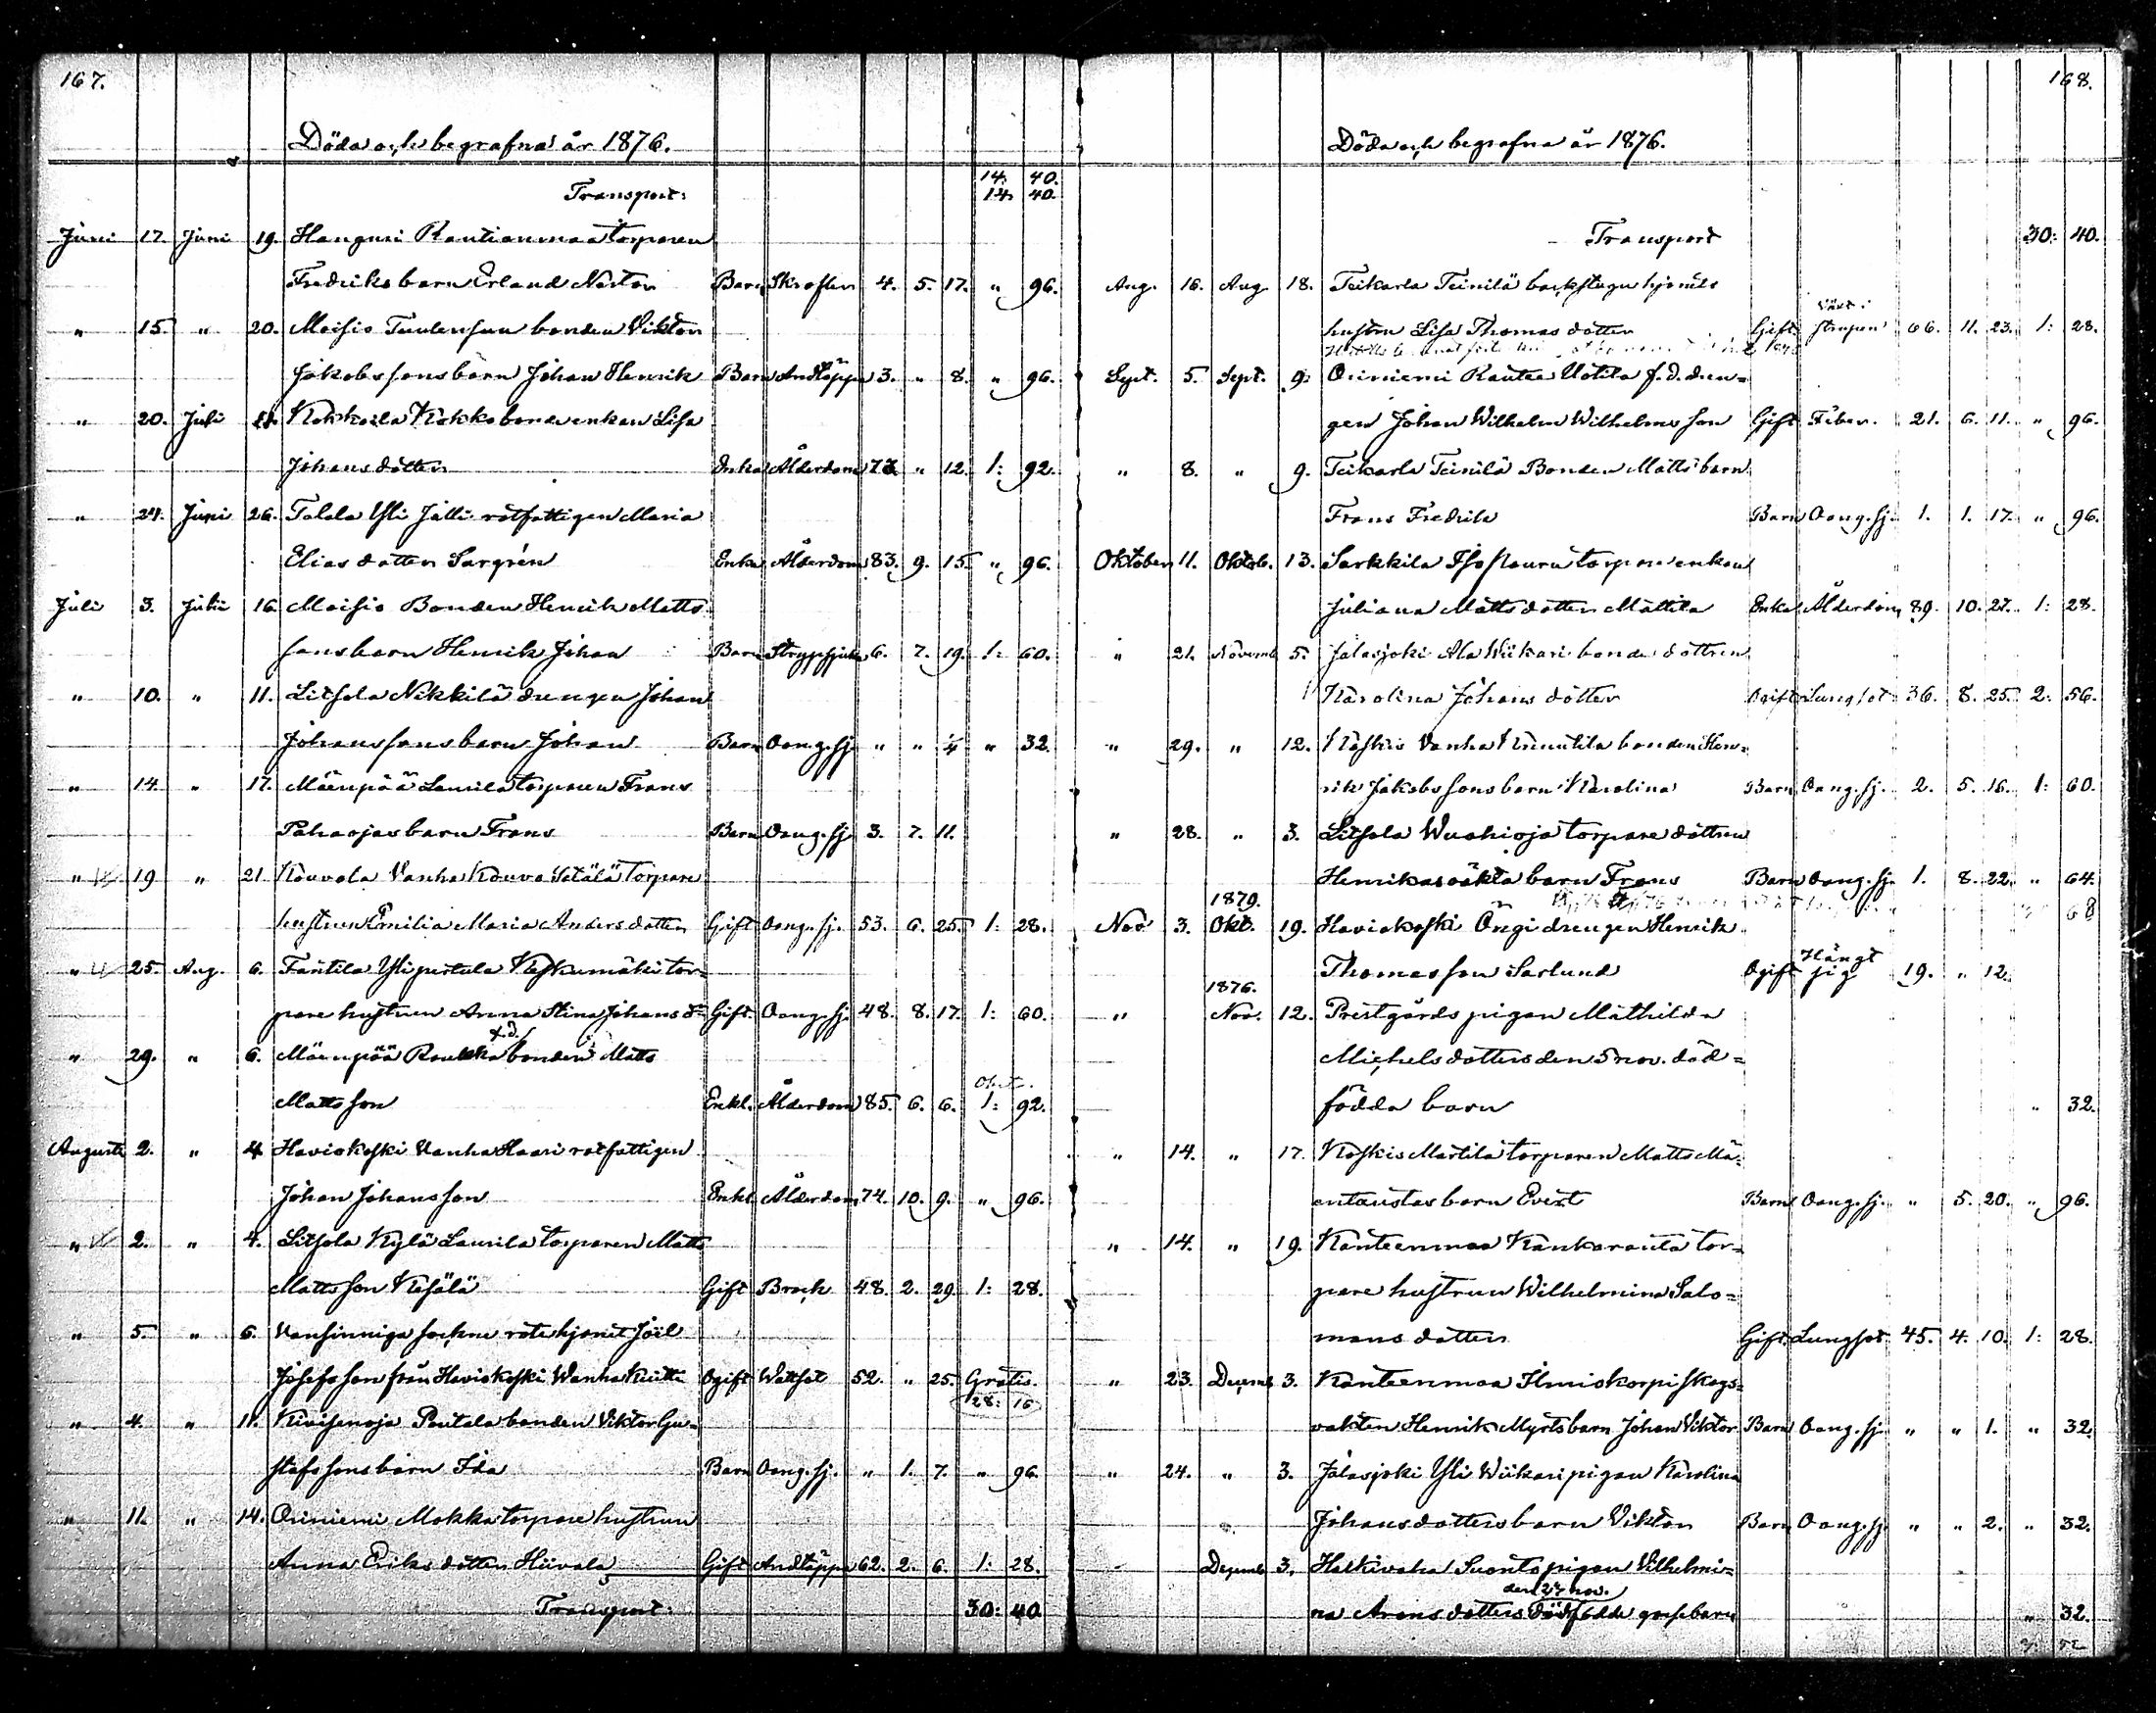 167.
Döda och begrafna år 1876.
14. 40.
Transport: 14. 40.
Juni 17. Juni 19. Hangusi Rautianmaa torparen
Fredriks barn Erland Nestor Barn Skroflen 4. 5. 17. " 96.
" 15 " 20. Moisio Tuulensuu bonden Viktor
Jakobssons barn Johan Henrik Barn Andtäppa 3. " 8. " 96.
" 20. Juli Kokkoila Kokko bondeenkan Lisa
Johansdotter Enka Ålderdom " 12. 1: 92.
" 24. Juni 26. Talala Yli Jalli rotfattigen Maria
Elias dotter Sargrén Enka Ålderdom 83. 9. 15. " 96.
Juli 3. Juli 16. Moisio Bonden Henrik Matts
sons barn Henrik Johan Barn Strypsjuka 6. 7. 19. 1: 60.
" 10. " 11. Litsola Nikkilä drengen Johan
Johanssons barn Johan Barn Oang. sj. " " 1/4 " 32.
" 14. " 17. Mäenpää Laurila torparen Frans
Pahaojas barn Frans Barn Oang. sj. 3. 7. 11.
" 19 " 21 Kouvola Vanha Kouvo Satälä torpare
hustrun Emilia Maria Anders dotter Gift Oang. sj. 53. 6. 25. 1: 28.
" 25. Aug. 6. Fäntila Ylipertula Keskumäki tor=
pare hustrun Anna Stina Johans d:r Gift Oang. sj. 48. 8. 17. 1: 60.
" 29. " 6. Mäenpää Roukka f.d. bonden Matts
Mattsson Enkl. Ålderdom 85. 6. 6. 1: 92.
Augusti 2. " 4 Haviokoski Vanha Haari rotfattigen
Johan Johansson Enkl Ålderdom 74. 10. 9. " 96.
" 2. " 4. Litsola Kylä Laurila torparen Matts
Mattsson Kesälä Gift Brock 48. 2. 29. 1: 28.
" 5. " 6. Vansinniga sockne rotehjonet Joël
Josefsson från Haviokoski Wanha Knuti Ogift Wattsot 52. " 25. Gratis.
28: 16
" 4. " 11. Kivisenoja Pentala bonden Viktor Gu=
stafssons barn Ida Barn Oang. sj. " 1. 7. " 96.
" 11. " 14. Oriniemi Mokka torpare hustrun
Anna Eriks dotter Hiivala Gift Andtäppa 62. 2. 6. 1: 28.
Transport: 30: 40
168.
Döda och begrafna år 1876.
Transport 30: 40.
Aug. 16. Aug. 18. Teikarla Teinilä backstugu hjonets
hustru Lisa Thomas dotter Gift 66. 11. 23. 1: 28.
Sept. 5. Sept. 9. Oriniemi Rautee Uotila f.d. dren=
gen Johan Wilhelm Wilhelmsson Gift Feber. 21. 6. 11. " 96.
" 8. " 9. Teikarla Teinilä Bonden Matts barn
Frans Fredrik Barn Oang. sj. 1. 1. 17. " 96.
Oktober 11. Oktob. 13. Sarkkila Iso Nouru torpare enkan
Juliana Matts dotter Mattila Enka Ålderdom 89. 10. 27. 1: 28.
" 21. Novemb. 5. Jalasjoki Ala Wiikari bonde dottren
Karolina Johans dotter Ogift Lungsot 36. 8. 25. 2: 56.
" 29. " 12. Koskis Vanha Knuutila bonden Hen=
rik Jakobssons barn Karolina Barn Oang. sj. 2. 5. 16. 1: 60.
" 28. " 3. Litsola Wuohioja torpare dottren
Henrikas oäkta barn Frans Barn Oang. sj. 1. 8. 22. " 64.
68
1879.
Nov 3. Okt. 19. Haviokoski Ängi drengen Henrik
Thomasson Sarlund Ogift Hängt sig 19. " 12.
1876.
" Nov. 12. Prestgårds pigan Mathilda
Michels dotters den 5 nov. död=
födda barn " 32.
" 14. " 17. Koskis Martila torparen Matts Mä=
entaustas barn Evert Barn Oang. sj. " 5. 20. " 96.
" 14. " 19. Kanteenmaa Kankaranta tor=
pare hustrun Wilhelmina Salo=
mons dotter Gift Lungsot 45. 4. 10. 1: 28.
" 23. Decemb 3. Kanteenmaa Ilmiskorpi skogs=
vakten Henrik Myrts barn Johan Viktor Barn Oang. sj. " " 1. " 32.
" 24. " 3. Jalasjoki Yli Wiikari pigan Karolina
Johansdotters barn Viktor Barn Oang. sj. " " 2. " 32.
Decemb 3. Halkivaha Suonto pigan Vilhelmi=
den 27 nov.
na Arons dotters dödfödde gossebarn " 32.